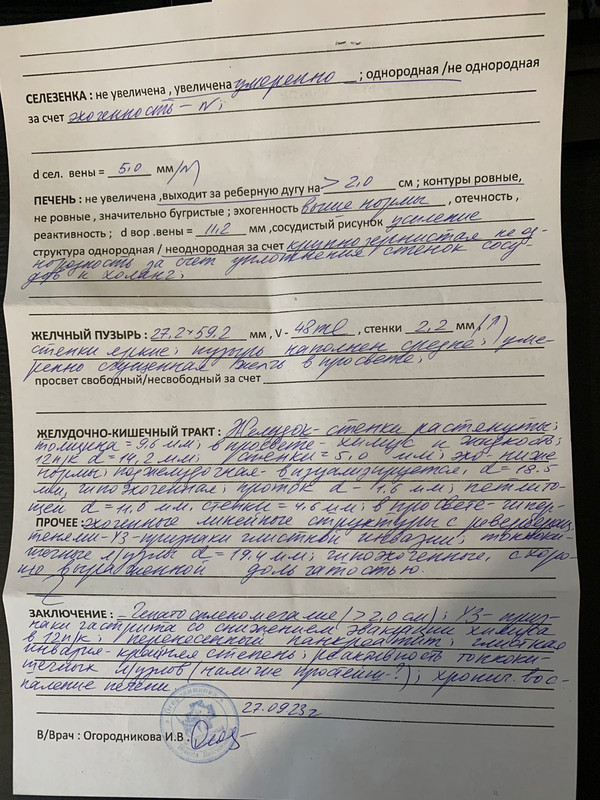 СЕЛЕЗЕНКА : не увеличена , увеличена умеренно ; однородная /не однородная
за счет эхогенность – N;
d сел. вены = 5,0 мм /N
ПЕЧЕНЬ : не увеличена ,выходит за реберную дугу на > 2,0 см ; контуры ровные,
не ровные , значительно бугристые ; эхогенность выше нормы , отечность ,
реактивность ; d вор .вены = 11,2 мм ,сосудистый рисунок усиление
структура однородная / неоднородная за счет крупнозернистая неод-
нородность за счет уплотнения стенок сосу-
дов и холанг;
ЖЕЛЧНЫЙ ПУЗЫРЬ : 27,2*59,2 мм , V - 48 ml , стенки 2,2 мм (↑)
стенки яркие; пузырь наполнен средне; уме-
ренно сгущенная желчь в просвете;
просвет свободный/несвободный за счет
ЖЕЛУДОЧНО-КИШЕЧНЫЙ ТРАКТ : Желудок- стенки растянуты;
толщина = 9,6 мм; в просвете- химус и жидкость;
12п/к d = 14,2 мм; стенки = 5,0 мм; эхо- ниже
нормы; поджелудочная - визуализируется, d = 18,5
мм, гипоэхогенная; проток d - 1,6 мм; петли то-
щей d = 11,0 мм. стенки = 4,6 мм; в просвете гипер-
ПРОЧЕЕ : эхогенные линейные структуры с ревербера
тенями- УЗ-признаки глистной инвазии; тонкоки-
шечные л/узлы d = 19,4 мм; гипоэхогенные, с хоро-
шо выраженной дольчатостью.
ЗАКЛЮЧЕНИЕ : Гепатоспленомегалия (> 2,0 см); УЗ- приз-
наки гастрита со снижением эвакуации химуса
в 12п/к; перенесенный панкреатит; глистная
инвазия- крайняя степень; реактивность тонкоки-
шечных л/узлов (наличие простейш-?); хронич. вос-
паление печени
27.09.23г
В/Врач : Огородникова И.В.